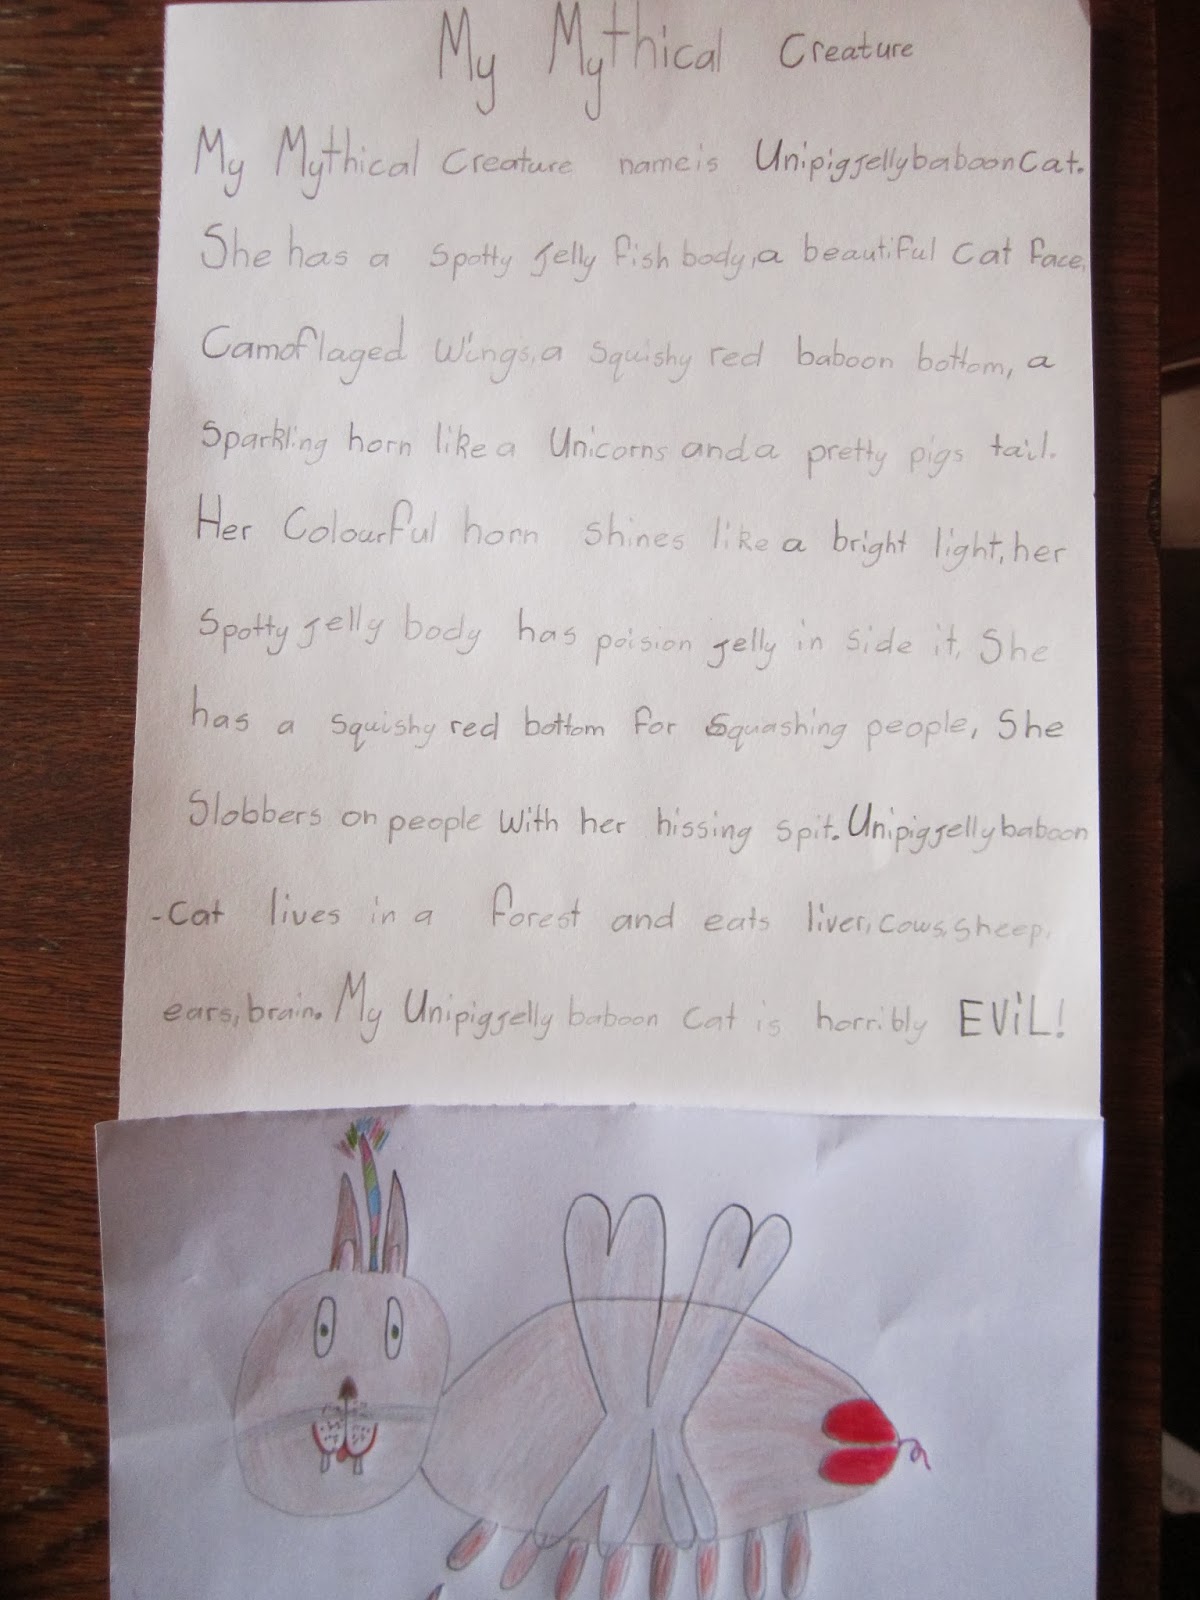 My Mythical Creature
My Mythical Creature name is UnipigjellybaboonCat.
She has a spotty jelly fish body, a beautiful Cat face,
Camoflaged wings, a squishy red baboon bottom, a
sparkling horn like a Unicorns and a pretty pigs tail.
Her Colourful horn shines like a bright light, her
spotty jelly body has poision jelly in side it, She
has a squishy red bottom for squashing people, She
Slobbers on people with her hissing spit. Unipigjellybaboon
-Cat lives in a forest and eats liver, cows, sheep,
ears, brain. My Unipigjelly baboon Cat is horribly EViL!